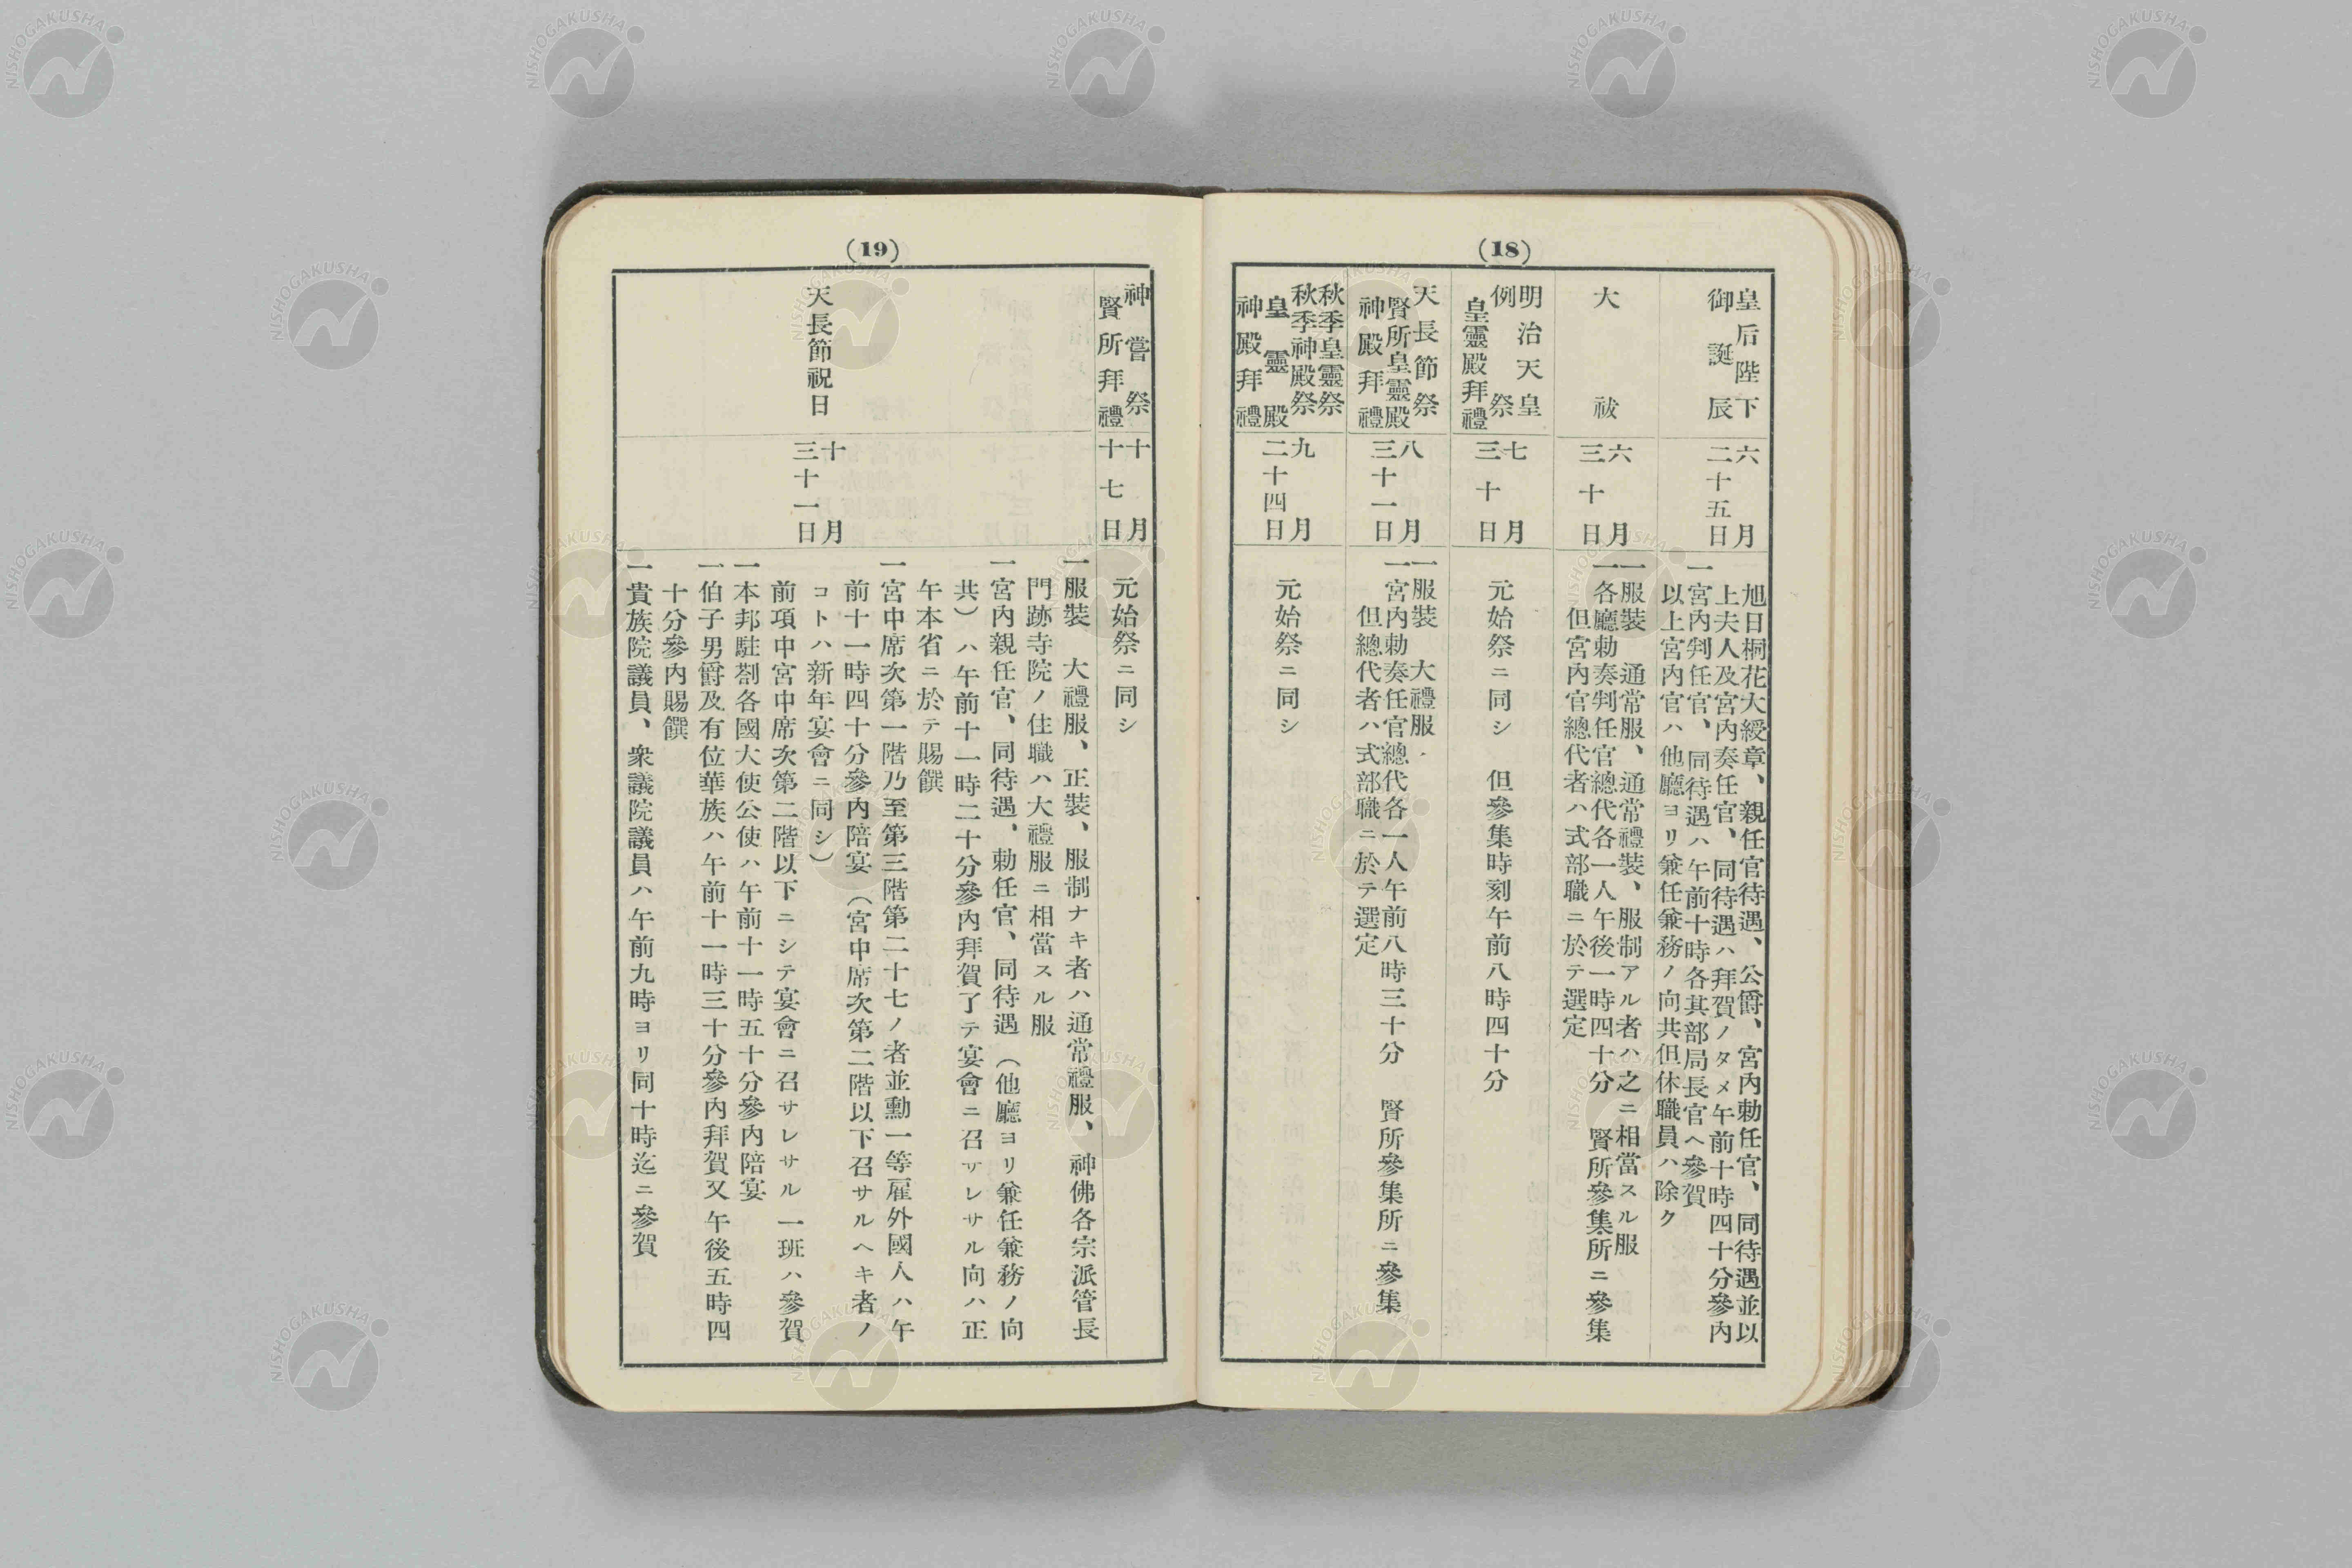 (18)
皇后陛下
御誕辰
六月
二十五日
旭日桐花大綬章、親任官待遇、公爵、宮內勅任官、同待遇並以
上夫人及宮內奏任官、同待遇ハ拜賀ノタメ午前十時四十分參內
一宮內判任官、同待遇ハ午前十時各其部局長官ヘ參賀
以上宮內官ハ他廳ヨリ兼任兼務ノ向共但休職員ハ除ク
大祓
六月
三十日
一服裝　通常服、通常禮裝、服制アル者ハ之ニ相當スル服
一各廳勅奏判任官總代各一人午後一時四十分　賢所參集所ニ參集
但宮內官總代者ハ式部職ニ於テ選定
明治天皇
例祭
皇靈殿拜禮
七月
三十日
元始祭ニ同シ　但參集時刻午前八時四十分
天長節祭
賢所皇靈殿
神殿拜禮
八月
三十一日
一服裝　大禮服
一宮內勅奏任官總代各一人午前八時三十分　賢所參集所ニ參集
但總代者ハ式部職ニ於テ選定
秋季皇靈祭
秋季神殿祭
皇靈殿
神殿拜禮
九月
二十四日
元始祭ニ同シ
(19)
神嘗祭
賢所拜禮
十月
十七日
元始祭ニ同シ
天長節祝日
十月
三十一日
一服裝　大禮服、正裝、服制ナキ者ハ通常禮服、神佛各宗派管長
門跡寺院ノ住職ハ大禮服ニ相當スル服
一宮內親任官、同待遇、勅任官、同待遇（他廳ヨリ兼任兼務ノ向
共）ハ午前十一時二十分參內拜賀了テ宴會ニ召サレサル向ハ正
午本省ニ於テ賜饌
一宮中席次第一階乃至第三階第二十七ノ者並勳一等雇外國人ハ午
前十一時四十分參內陪宴（宮中席次第二階以下召サルヘキ者ノ
コトハ新年宴會ニ同シ）
前項中宮中席次第二階以下ニシテ宴會ニ召サレサル一班ハ參賀
一本邦駐劄各國大使公使ハ午前十一時五十分參內陪宴
一伯子男爵及有位華族ハ午前十一時三十分參內拜賀又午後五時四
十分參內賜饌
一貴族院議員、衆議院議員ハ午前九時ヨリ同十時迄ニ參賀
NISHOGAKUSHA